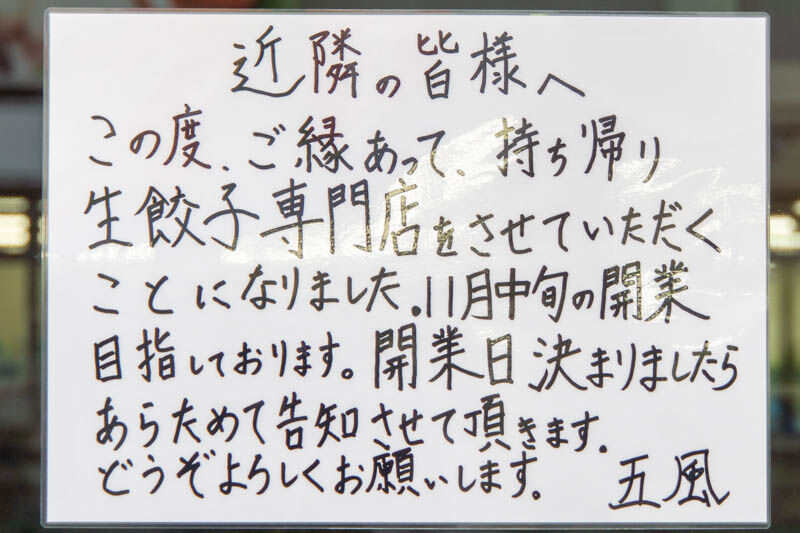 近隣の皆様へ
この度、ご縁あって、持ち帰り
生餃子専門店をさせていただく
ことになりました。11月中旬の開業
目指しております。開業日決まりましたら
あらためて告知させて頂きます。
どうぞよろしくお願いします。 五風